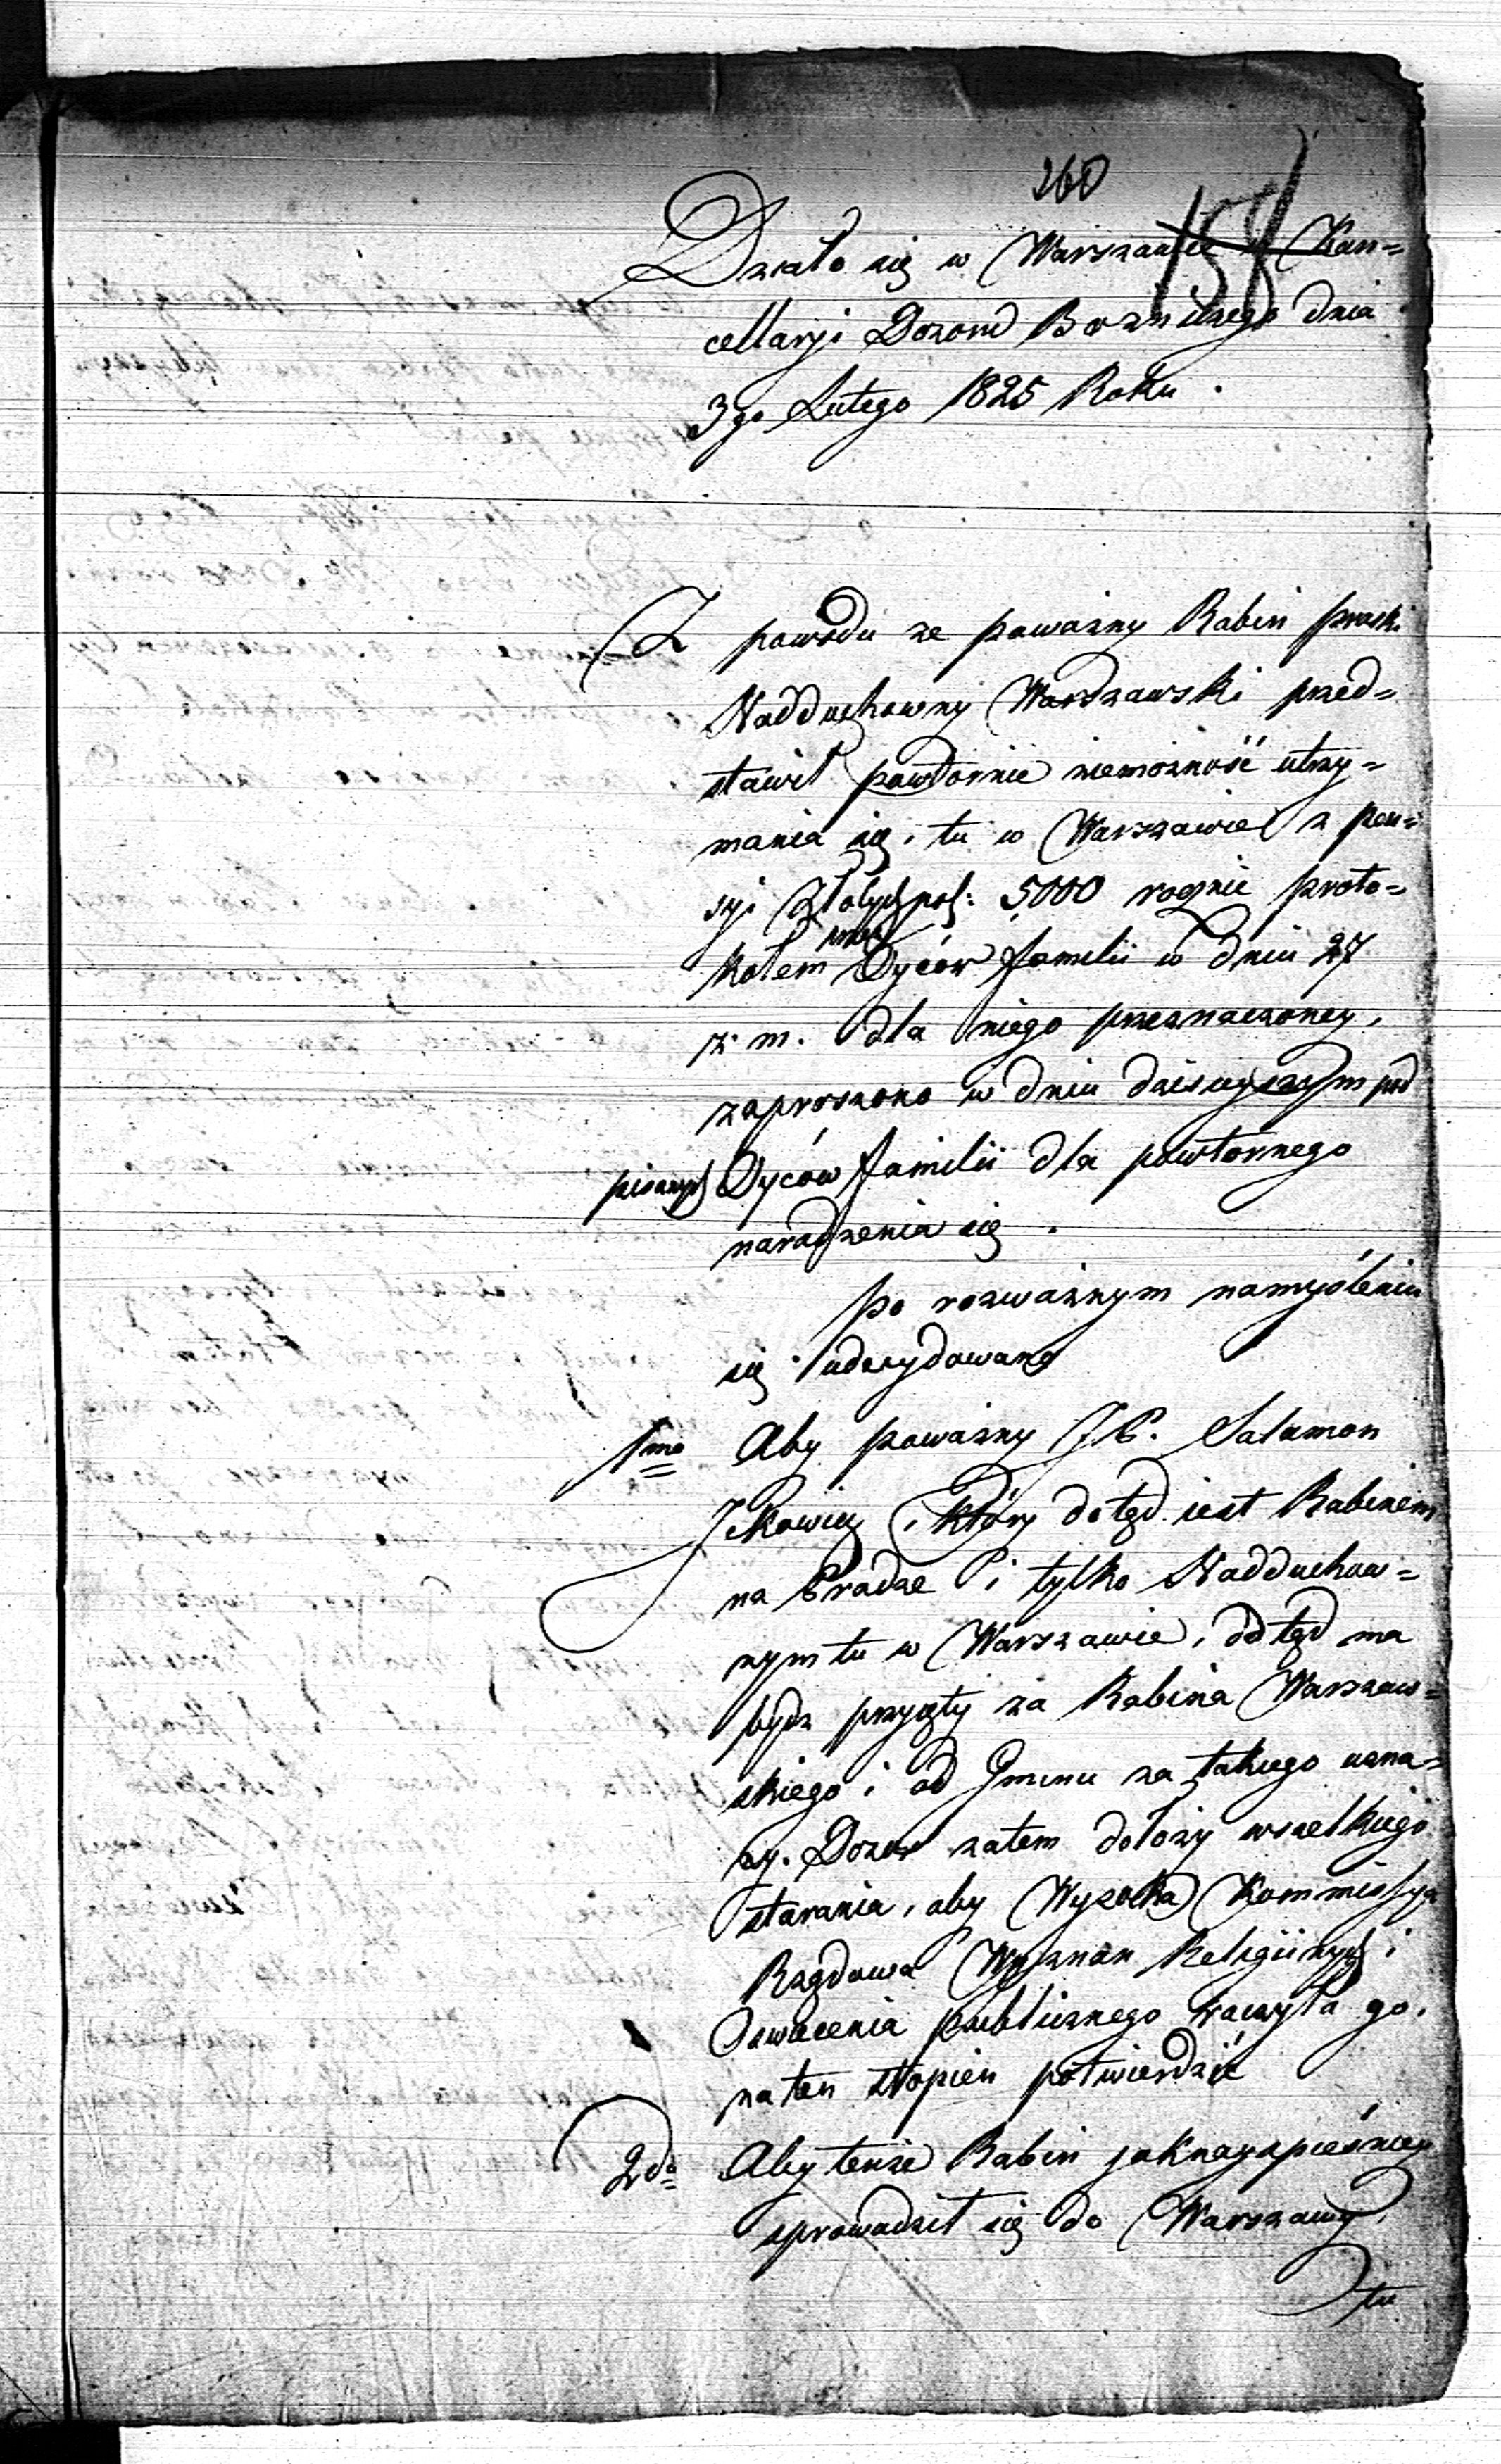 260
158
Działo się w Warszawie w Kan=
cellaryi Dozoru Bożniczego dnia
3go Lutego 1825 Roku.
Z powodu ze poważny Rabin praski
Nadduchowny Warszawski przed=
stawił powtórnie niemożność utrzy=
mania się, tu w Warszawie z pen=
syi Złotych pol: 5000 rocznie proto=
kołem przez Oyców familii w dniu 27
z. m. dla niego przeznaczoney,
zaproszono w dniu dzisieyszym pod
pisanych Oyców familii dla powtornego
naradzenia się.
po rozważnym namyśleniu
się udecydowano
1mo Aby poważny JP. Salamon
Ickowicz, który dotąd iest Rabinem
na Pradze i tylko Nadduchow=
nym tu w Warszawie, odtąd ma
bydz przyięty za Rabina Warszaw=
skiego i od Gminu za takiego uzna=
ny. Dozor zatem dołoży wszelkiego
starania, aby Wysoka Kommissya
Rządowa Wyznań Religiinych i
Oswiecenia publicznego raczyła go,
na ten stopien potwierdzić
2do Aby tenże Rabin jaknayspieśniey
sprowadził się do Warszawy,
tu